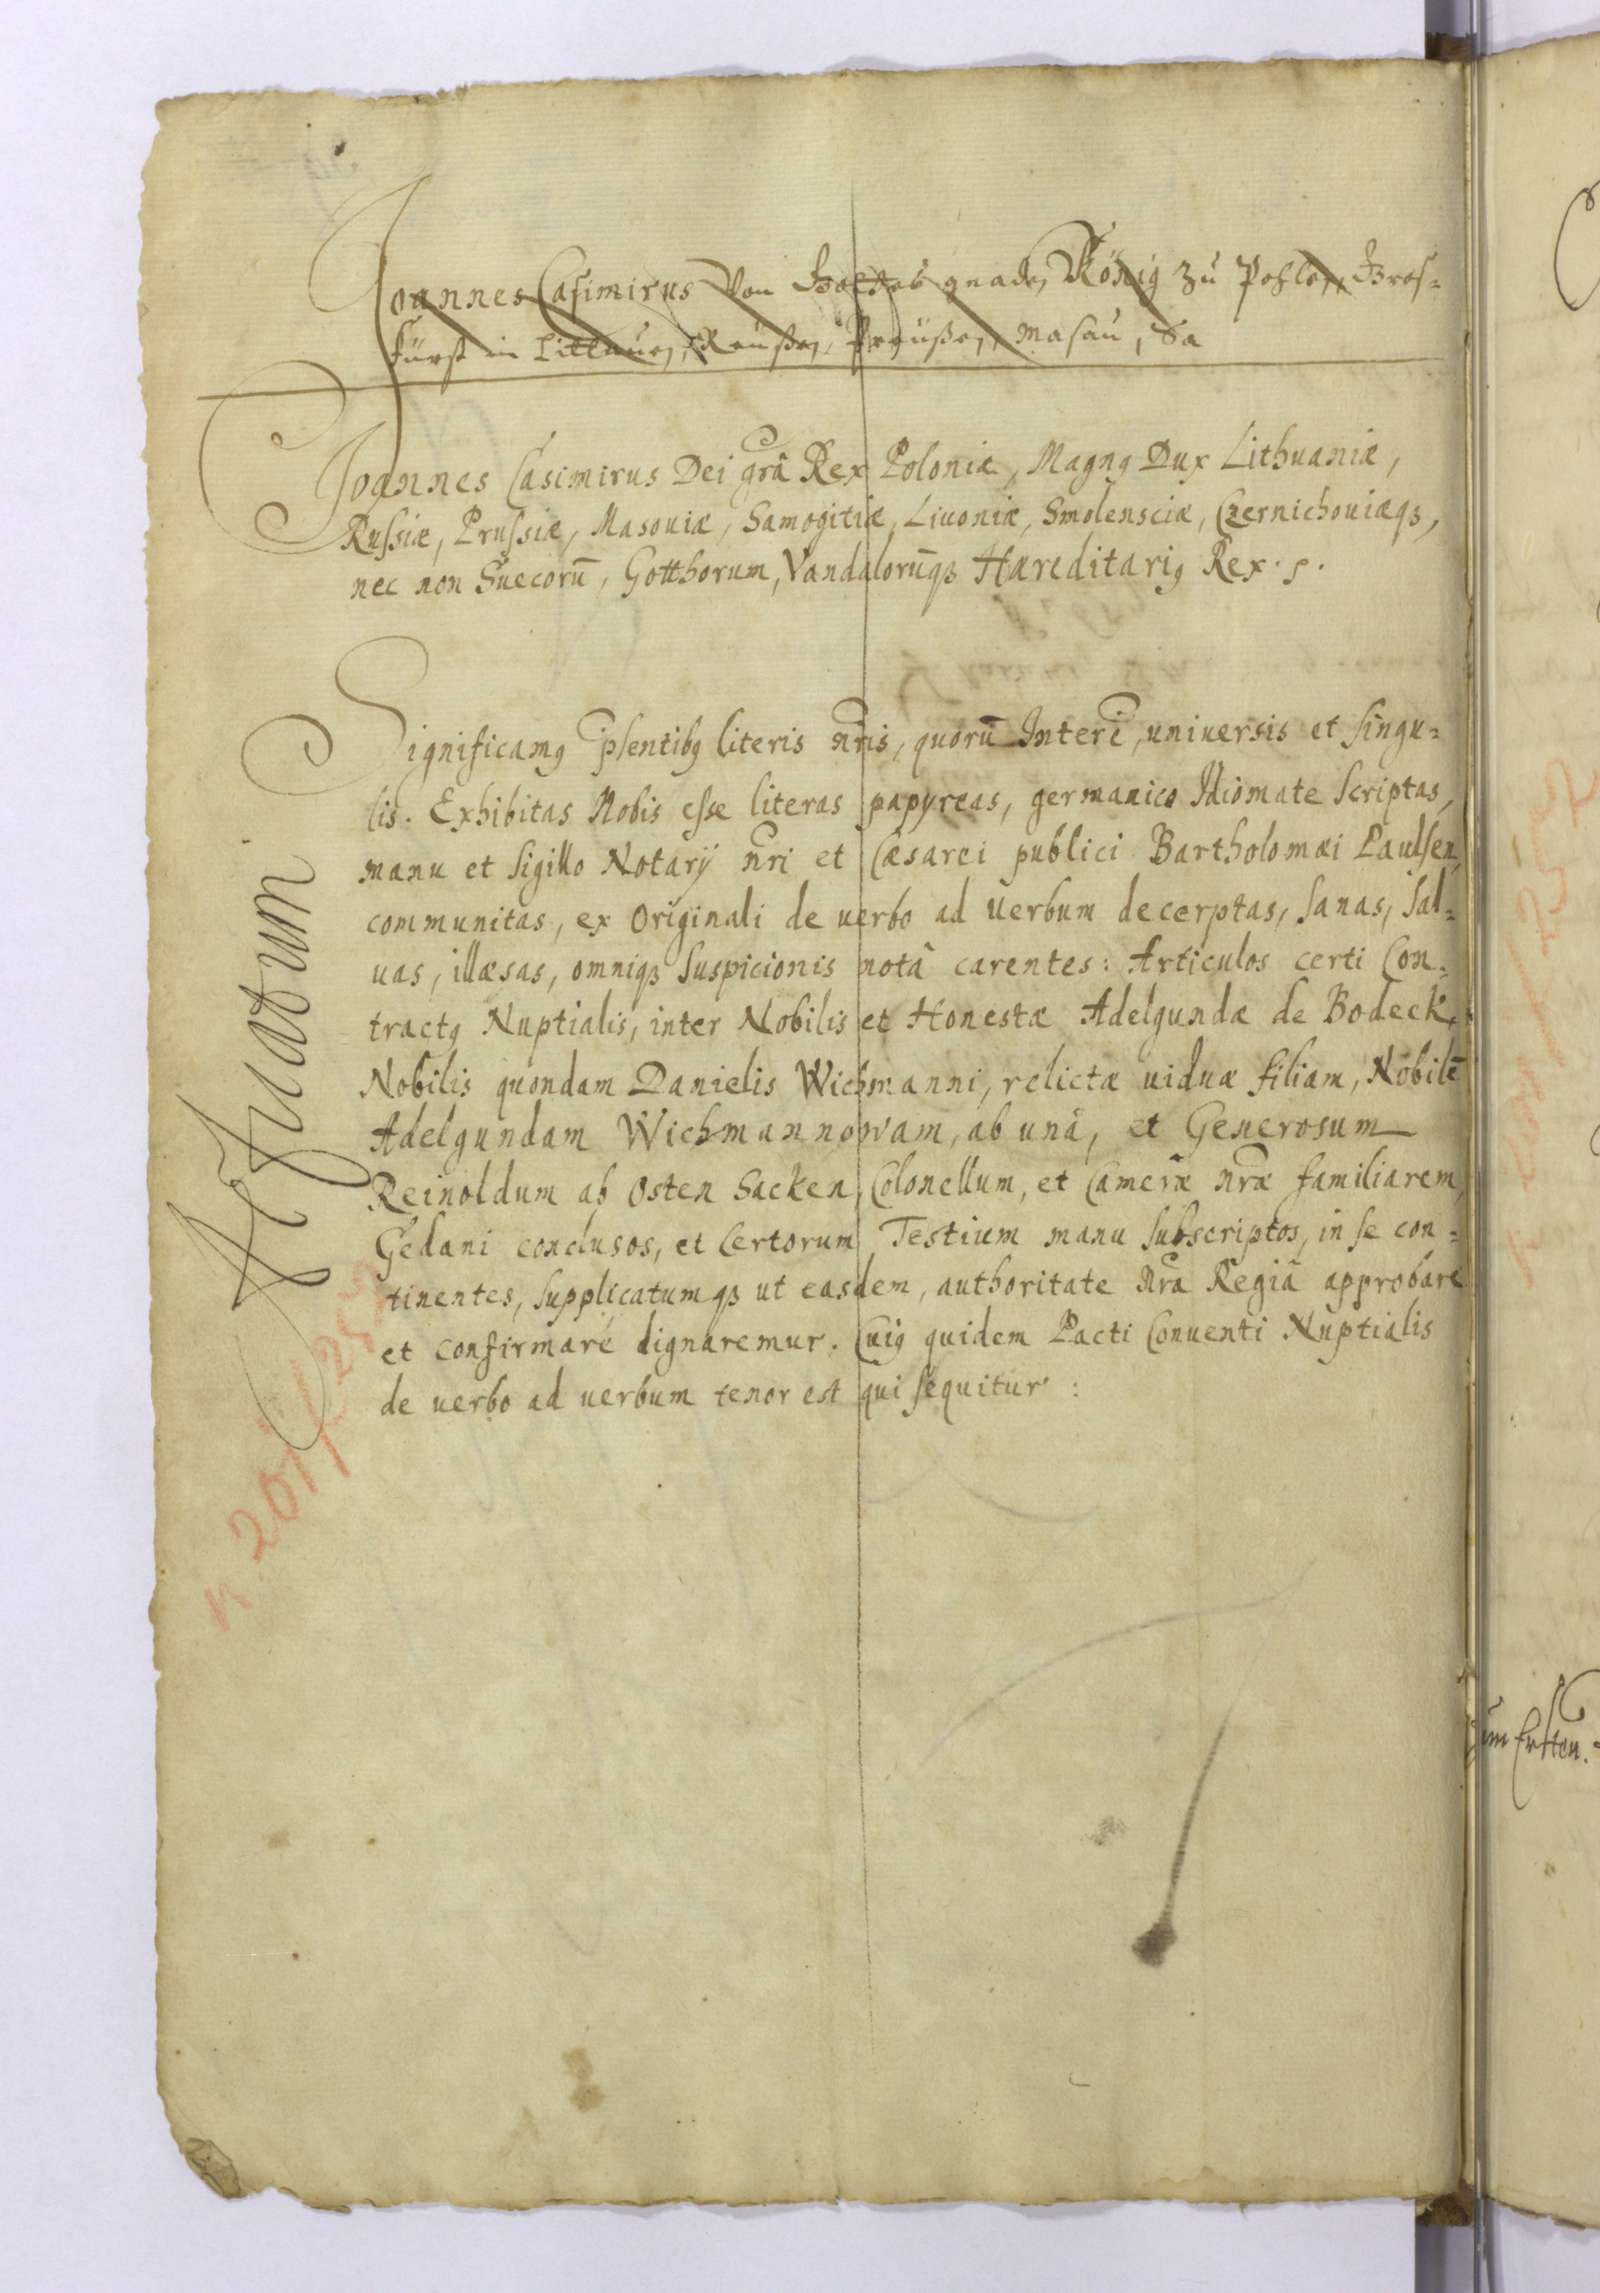 Joannes Casimirus Von Gottes gnaden König zu Pohlen, Gros=
fürst in Littauen, Reußen, Preußen, Masau, Sa
Joannes Casimirus Dei grâ Rex Poloniæ, Magnꝯ Dux Lithuaniæ,
Russiæ, Prussiæ, Masouiæ, Samogitiæ, Liuoniæ, Smolensciæ, Czernichouiæqꝫ,
nec non Suecorū, Gotthorum, Vandalorūqꝫ Hæreditariꝯ Rex.
Significamꝯ p̃sentibꝯ literis nr̃is, quorū Interẽ, uniuersis et singu=
lis. Exhibitas Nobis esse literas papyreas, germanico Idiomate scriptas,
manu et sigillo Notarÿ nr̃i et Cæsarei publici Bartholomæi Paulsen,
communitas, ex Originali de uerbo ad uerbum decerptas, sanas, sal=
uas, illæsas, omniqꝫ suspicionis notâ carentes: Articulos certi Con=
tractꝯ Nuptialis, inter Nobilis et Honestæ Adelgundæ de Bodeck,
Nobilis quondam Danielis Wichmanni, relictæ uiduæ filiam, Nobilē
Adelgundam Wichmannowam, ab unâ, et Generosum
Reinoldum ab Osten Sacken, Colonellum, et Cameræ nr̃æ familiarem,
Gedani conclusos, et Certorum Testium manu subscriptos, in se con=
tinentes, supplicatumqꝫ ut easdem, authoritate Nr̃a Regiâ approbare
et confirmare dignaremur. Cuiꝯ quidem Pacti Conuenti Nuptialis
de uerbo ad uerbum tenor est qui sequitur:
um Ersten.